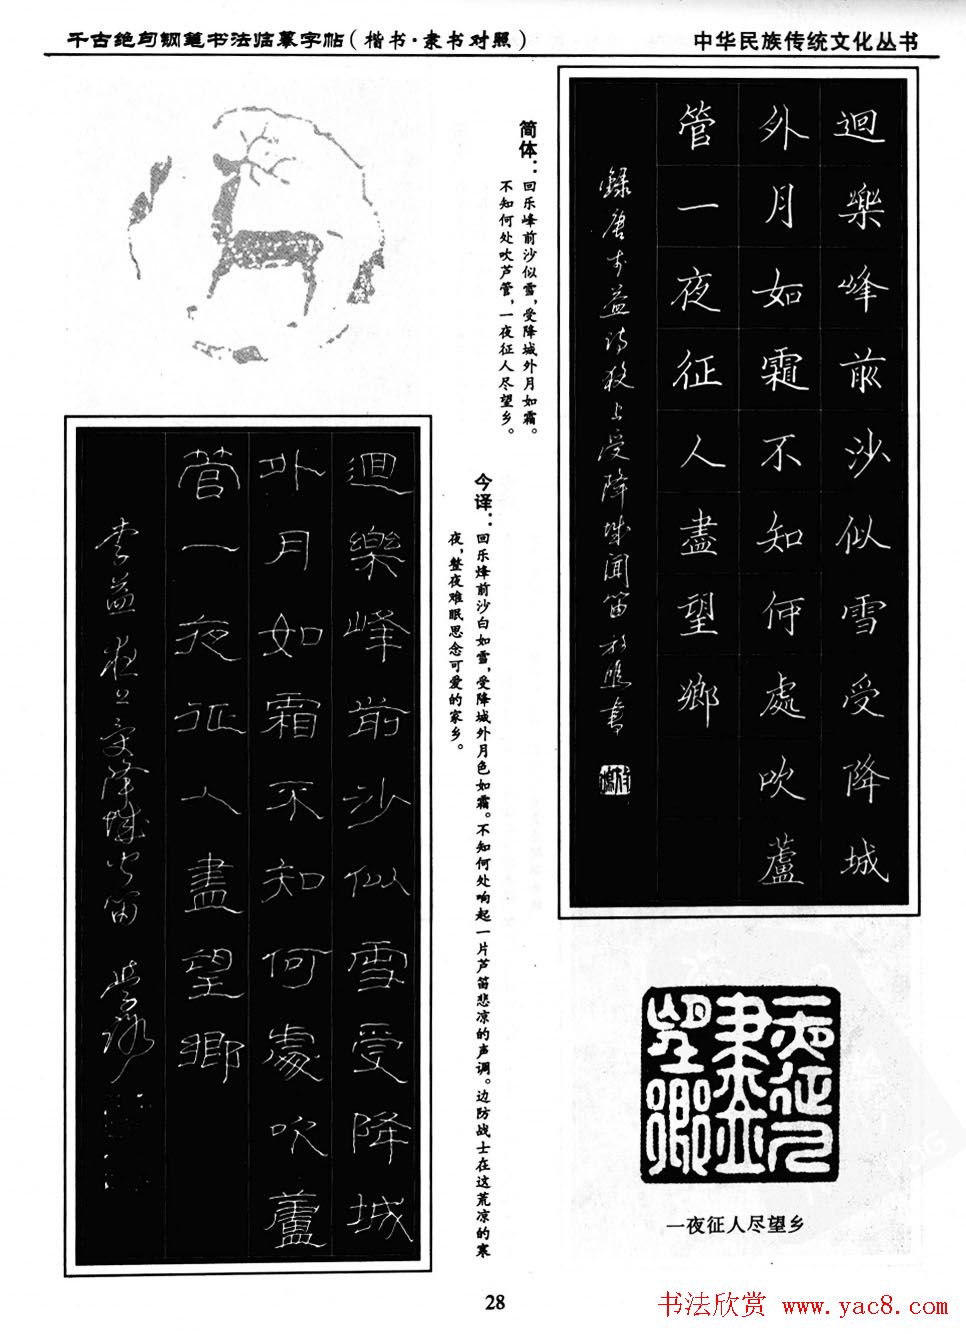 千古绝句钢笔书法临摹字帖(楷书·隶书对照)
中华民族传统文化丛书
迴樂峰前沙似雪受降城
外月如霜不知何處吹蘆
管一夜征人盡望鄉
錄唐李益詩夜上受降城聞笛
简体:回乐峰前沙似雪,受降城外月如霜。
不知何处吹芦管,一夜征人尽望乡。
今译:回乐烽前沙白如雪,受降城外月色如霜。不知何处响起一片芦笛悲凉的声调。边防战士在这荒凉的寒
夜,整夜难眠思念可爱的家乡。
迴樂峰前沙似雪受降城
外月如霜不知何處吹蘆
管一夜征人盡望鄉
李益夜上受降城聞笛
一夜征人
盡
望鄉
一夜征人尽望乡
28
书法欣赏 www.yac8.com